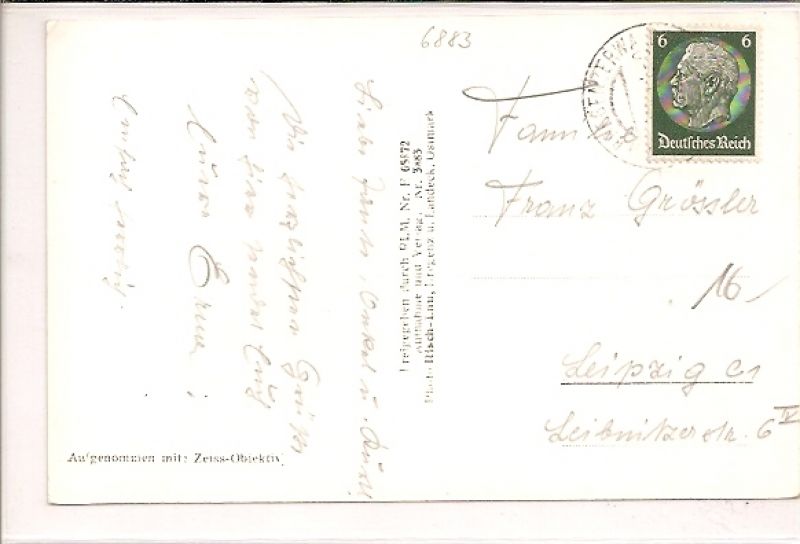 6883
6 6
Deutsches Reich
Familie
Franz Grössler
16
Leipzig C1
Leibnitzerstr. 6 IV
Freigegeben durch RLM. Nr. F 65872
Aufnahme und Verlag, Nr. 3883
Photo Risch-Lau, Bregenz u. Landeck, Ostmark
Liebe Tante, Onkel u.
Die herzlichsten Grüße
von hier sendet Euch
Eure Erna
Aufgenommen mit: Zeiss-Objektiv